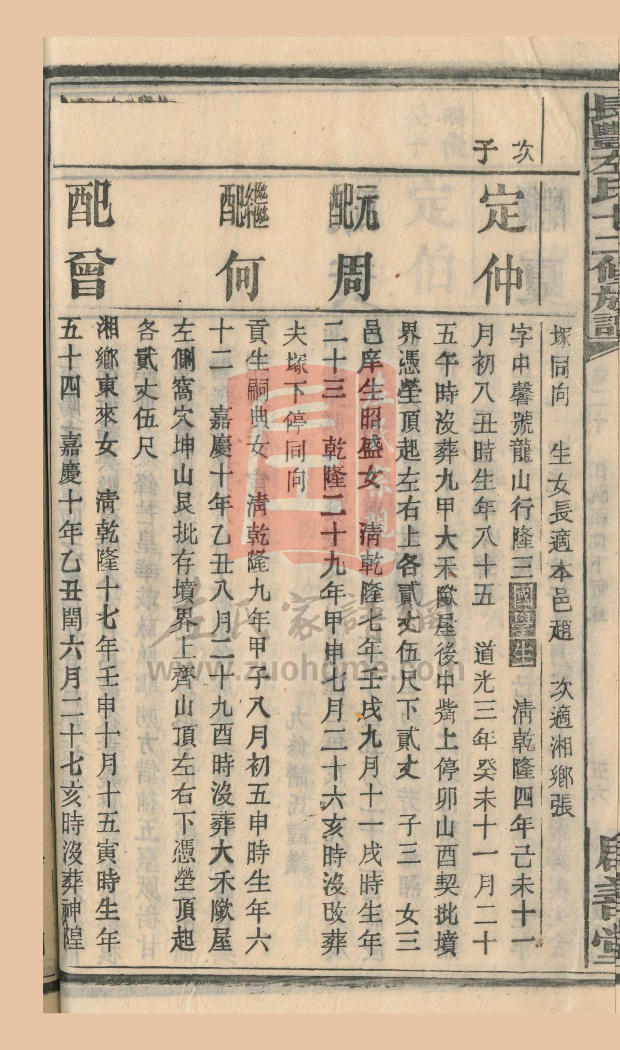 長豐左氏十二修族譜
塚同向　生女長適本邑趙　次適湘鄉張
次子
定仲
字中馨號龍山行隆三國學生　清乾隆四年己未十一
月初八丑時生年八十五　道光三年癸未十一月二十
五午時沒葬九甲大禾歟屋後中觜上停卯山酉契批墳
界憑塋頂起左右上各貳丈伍尺下貳丈　子三　女三
元配周
邑庠生昭盛女　清乾隆七年壬戌九月十一戌時生年
二十三　乾隆二十九年甲申七月二十六亥時沒改葬
夫塚下停同向
繼配何
貢生嗣典女　清乾隆九年甲子八月初五申時生年六
十二　嘉慶十年乙丑八月二十九酉時沒葬大禾歟屋
左側窩穴坤山艮批存墳界上齊山頂左右下憑塋頂起
各貳丈伍尺
配曾
湘鄉東來女　清乾隆十七年壬申十月十五寅時生年
五十四　嘉慶十年乙丑閏六月二十七亥時沒葬神隍
左氏家譜
www.zuohome.com